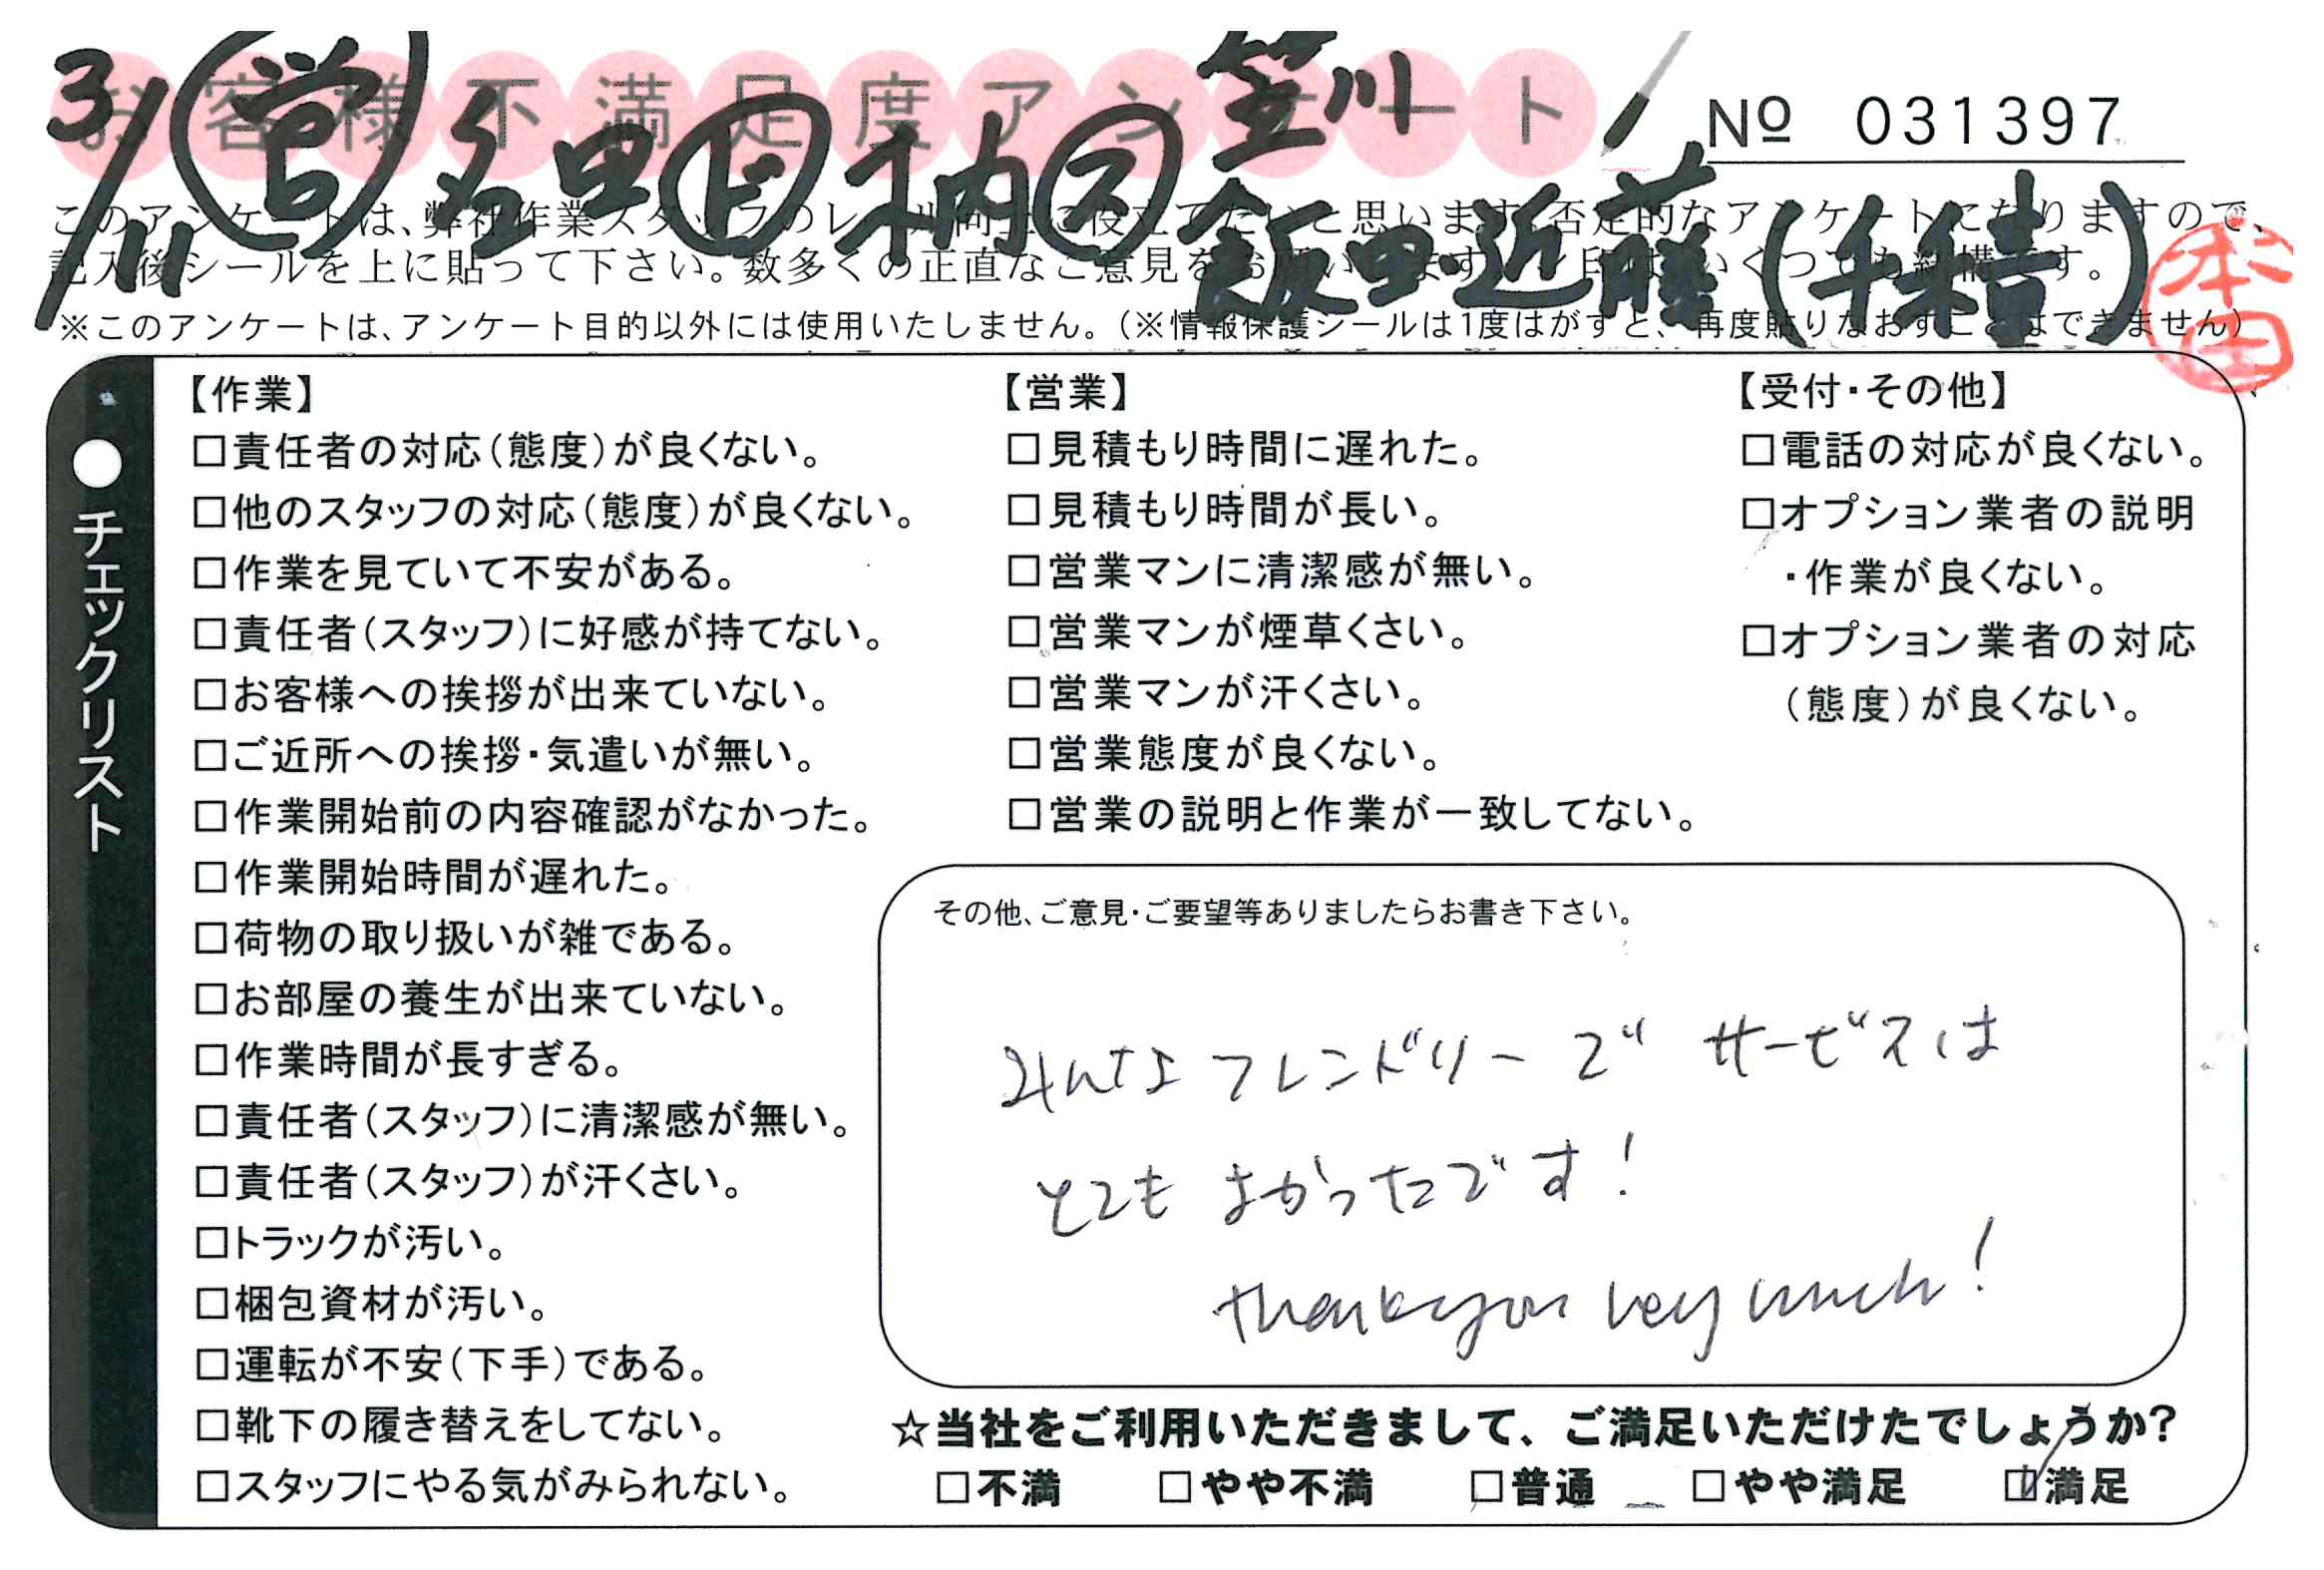 お客様不満足度アンケート
3/11 営 名田 ド 柄 ス 笠川
飯田 近藤 (千積)
本田
№ 031397
このアンケートは、弊社作業スタッフのレベル向上に役立てたいと思います。否定的なアンケートになりますので、
記入後シールを上に貼って下さい。数多くの正直なご意見をお願いします。レ印はいくつでも結構です。
※このアンケートは、アンケート目的以外には使用いたしません。(※情報保護シールは1度はがすと、再度貼りなおすことはできません)
●チェックリスト
【作業】
□責任者の対応(態度)が良くない。
□他のスタッフの対応(態度)が良くない。
□作業を見ていて不安がある。
□責任者(スタッフ)に好感が持てない。
□お客様への挨拶が出来ていない。
□ご近所への挨拶・気遣いが無い。
□作業開始前の内容確認がなかった。
□作業開始時間が遅れた。
□荷物の取り扱いが雑である。
□お部屋の養生が出来ていない。
□作業時間が長すぎる。
□責任者(スタッフ)に清潔感が無い。
□責任者(スタッフ)が汗くさい。
□トラックが汚い。
□梱包資材が汚い。
□運転が不安(下手)である。
□靴下の履き替えをしてない。
□スタッフにやる気がみられない。
【営業】
□見積もり時間に遅れた。
□見積もり時間が長い。
□営業マンに清潔感が無い。
□営業マンが煙草くさい。
□営業マンが汗くさい。
□営業態度が良くない。
□営業の説明と作業が一致してない。
【受付・その他】
□電話の対応が良くない。
□オプション業者の説明
・作業が良くない。
□オプション業者の対応
(態度)が良くない。
その他、ご意見・ご要望等ありましたらお書き下さい。
みんなフレンドリーで サービスは
とても よかったです!
thank you very much!
☆当社をご利用いただきまして、ご満足いただけたでしょうか?
□不満 □やや不満 □普通 □やや満足 ☑満足